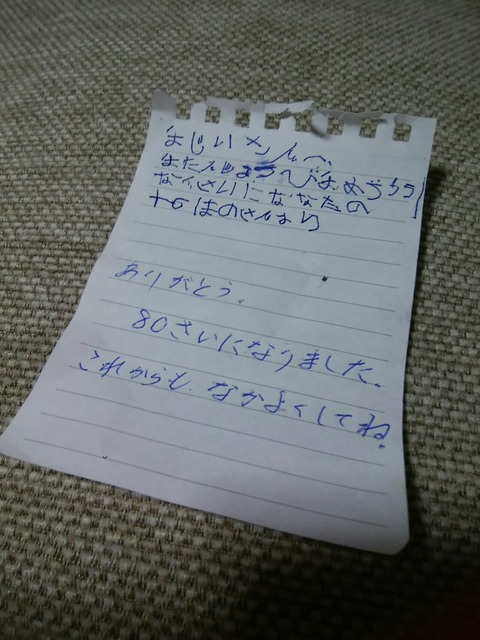 はじいメんへ、
はたんじょうびおめうとう
なんさいになたの
ほのさんより
ありがとう。
80さいになりました。
これからも、なかよくしてね。